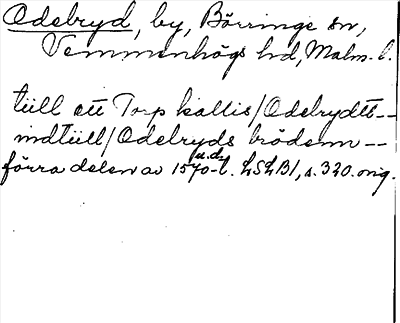 Odebryd, by, Börringe sn,
Vemmenhögs hd, Malm. l.
tiill ett Torp kallis/Odebrydtt--
indtiill/Odebryds brödenn--
förra delen av 1570-t. LSLB1, s. 320. orig.